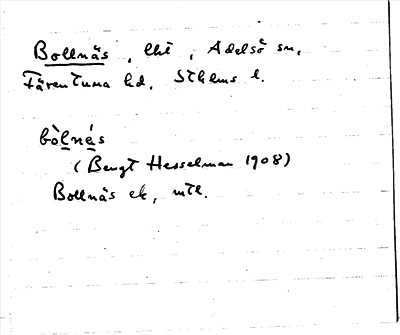 Bollnäs, lht, Adelsö sn,
Färentuna hd, Sthlms l.
bòlnés
(Bengt Hesselman 1908)
Bollnäs ek, mtl.